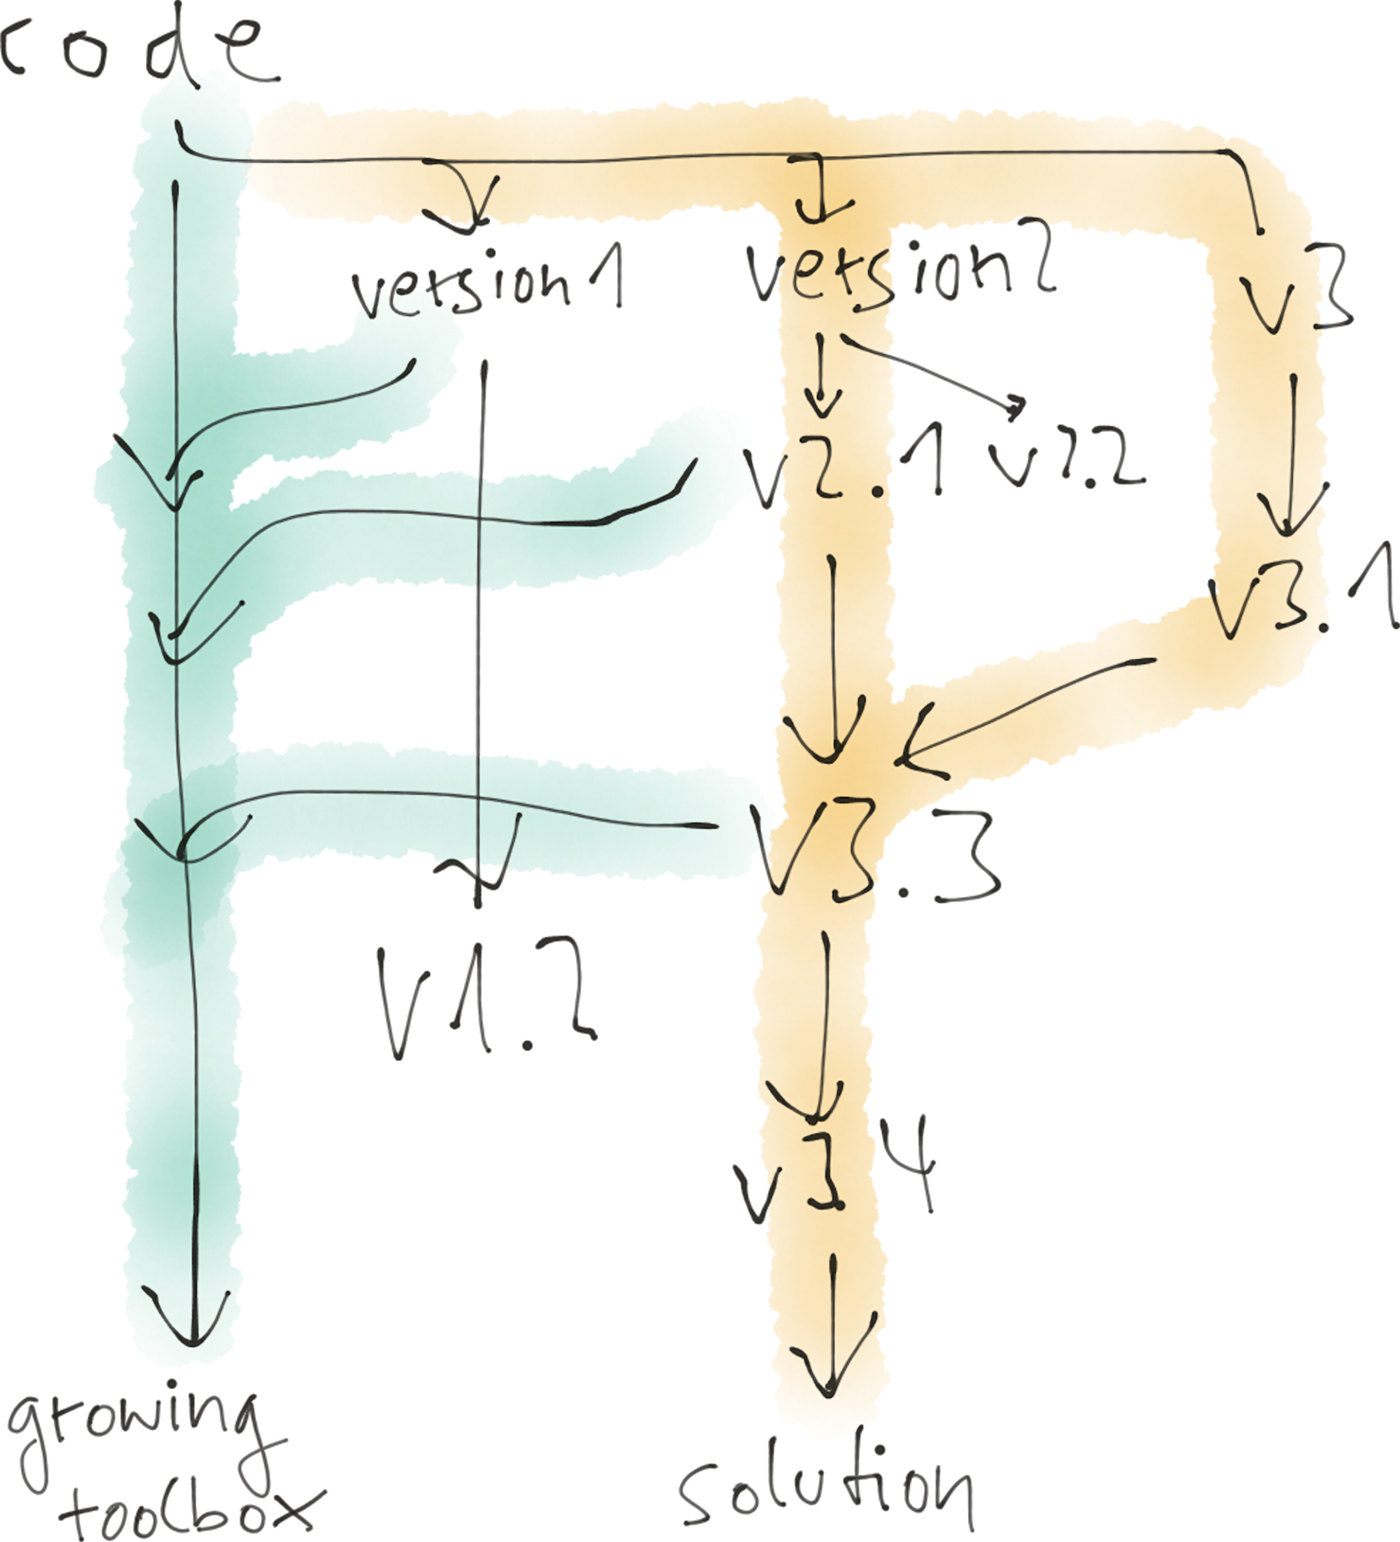 code
version 1
version 2
v3
v2.1
v2.2
v3.1
v3.3
v1.2
v3 4
growing
toolbox
solution